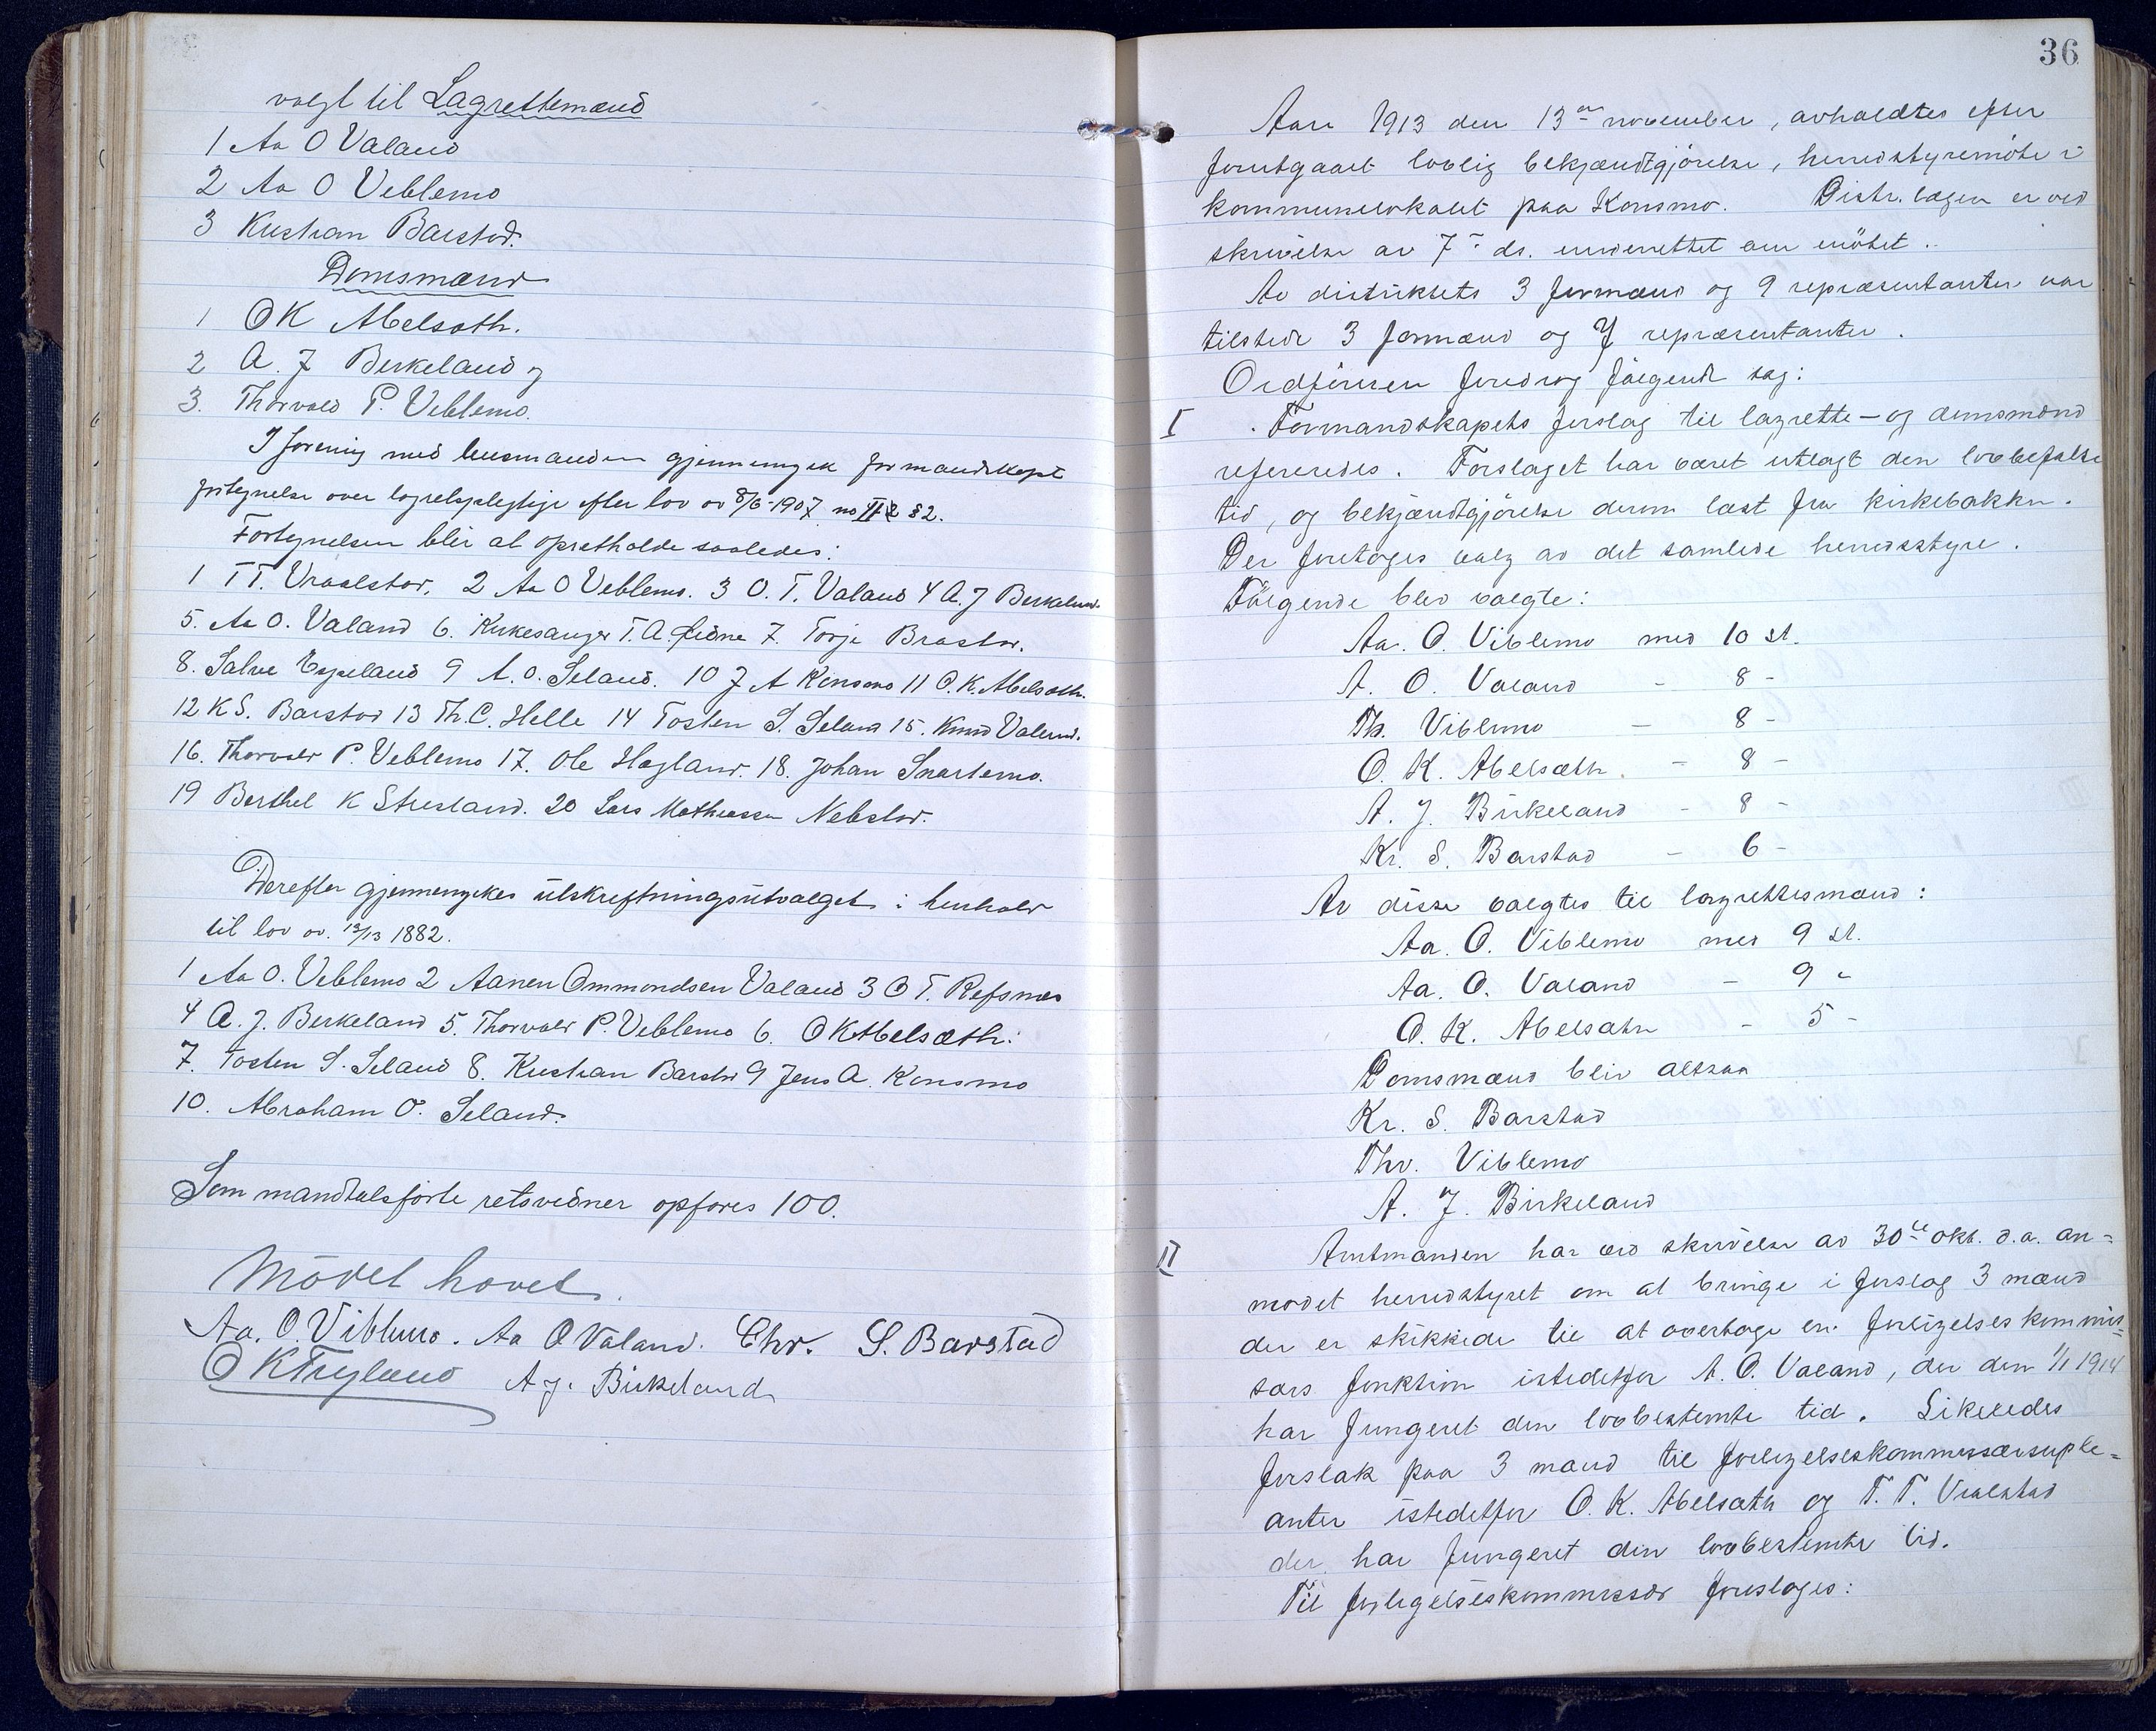 valgt til Lagrettemænd
1 Aa O Valand
2 Aa O Veblemo
3 Kristian Barstad.
Domsmænd
1 OK Abelsæth.
2 A. J Birkeland og
3. Thorvald P. Veblemo.
I forening med lensmanden gjennemgik formandskapet
fortegnelse over lagretspligtige efter lov av 8/6-1907 no II § 2.
Fortegnelsen blir at opretholde saaledes:
1 TT. Vraalstad, 2 Aa O Veblemo. 3 O. T. Valand 4 A. J Birkeland.
5. Aa O. Valand 6. Kirkesanger T. A. Eidne 7. Torje Brastad.
8. Salve Espeland 9 A. O. Seland. 10 J A Konsmo 11 O. K. Abelsæth.
12 K S. Barstad 13 Th. C. Helle 14 Tosten S. Seland 15. Knud Valand.
16. Thorvald P. Veblemo 17. Ole Hægland. 18. Johan Snartemo.
19 Berthel K Stusland. 20 Lars Mathiassen Nebstad.
Derefter gjennemgikes utskriftningsutvalget i henhold
til lov av. 13/13 1882.
1 Aa O. Veblemo 2 Aanen Ommondsen Valand 3 O T. Refsnes
4 A. J. Birkeland 5. Thorvald P. Veblemo 6. OK Abelsæth.
7. Tosten S. Seland 8. Kristian Barstad 9 Jens A. Konsmo
10. Abraham O. Seland.
Som mandtalsførte retsvidner opføres 100.
Mödet hævet.
Aa. O. Viblemo. Aa O Valand. Chr. S. Barstad
O K Fryland A J. Birkeland
36
Aar 1913 den 13de november, avholdtes efter
forutgaaet lovlig bekjændtgjörelse, herredstyremöte i
kommunelokalet paa Konsmo. Distr. lægen er ved
skrivelse av 7de ds. underrettet om mötet.
Av distriktets 3 formænd og 9 repræsentanter var
tilstede 3 formænd og 7 repræsentanter.
Ordföreren foredrog fölgende sag:
I. Formandskapets forslag til lagrette- og domsmænd
refereredes. Forslaget har været utlagt den lovbefalte
tid, og bekjændtgjörelse derom læst fra kirkebakken.
Der foretages valg av det samlede herredsstyre.
Fölgende blev valgte:
Aa. O. Viblemo med 10 st.
A. O. Valand - 8 -
Th. Viblemo - 8 -
O. K. Abelsæth. - 8 -
A. J. Birkeland - 8 -
Kr. S. Barstad - 6 -
Av disse valgtes til lagrettesmænd:
Aa. O. Viblemo med 9 st.
Aa. O. Valand - 9 "
O. K. Abelsæth - 5 -
Domsmænd blir altsaa
Kr. S. Barstad
Thv. Viblemo
A. J. Birkeland
II Amtmanden har ved skrivelse av 30te okt. d.a. an=
modet herredstyret om at bringe i forslag 3 mænd
der er skikkede til at overtage en forligelseskommis=
særs funktion istedetfor A. O. Valand, der den 1/1 1914
har fungeret den lovbestemte tid. Likeledes
forslak paa 3 mænd til forligelseskommissærsuple=
anter istedetfor O. K. Abelsæth og T. T. Vraalstad
der har fungeret den lovbestemte tid.
Til forligelseskommissær foreslages: